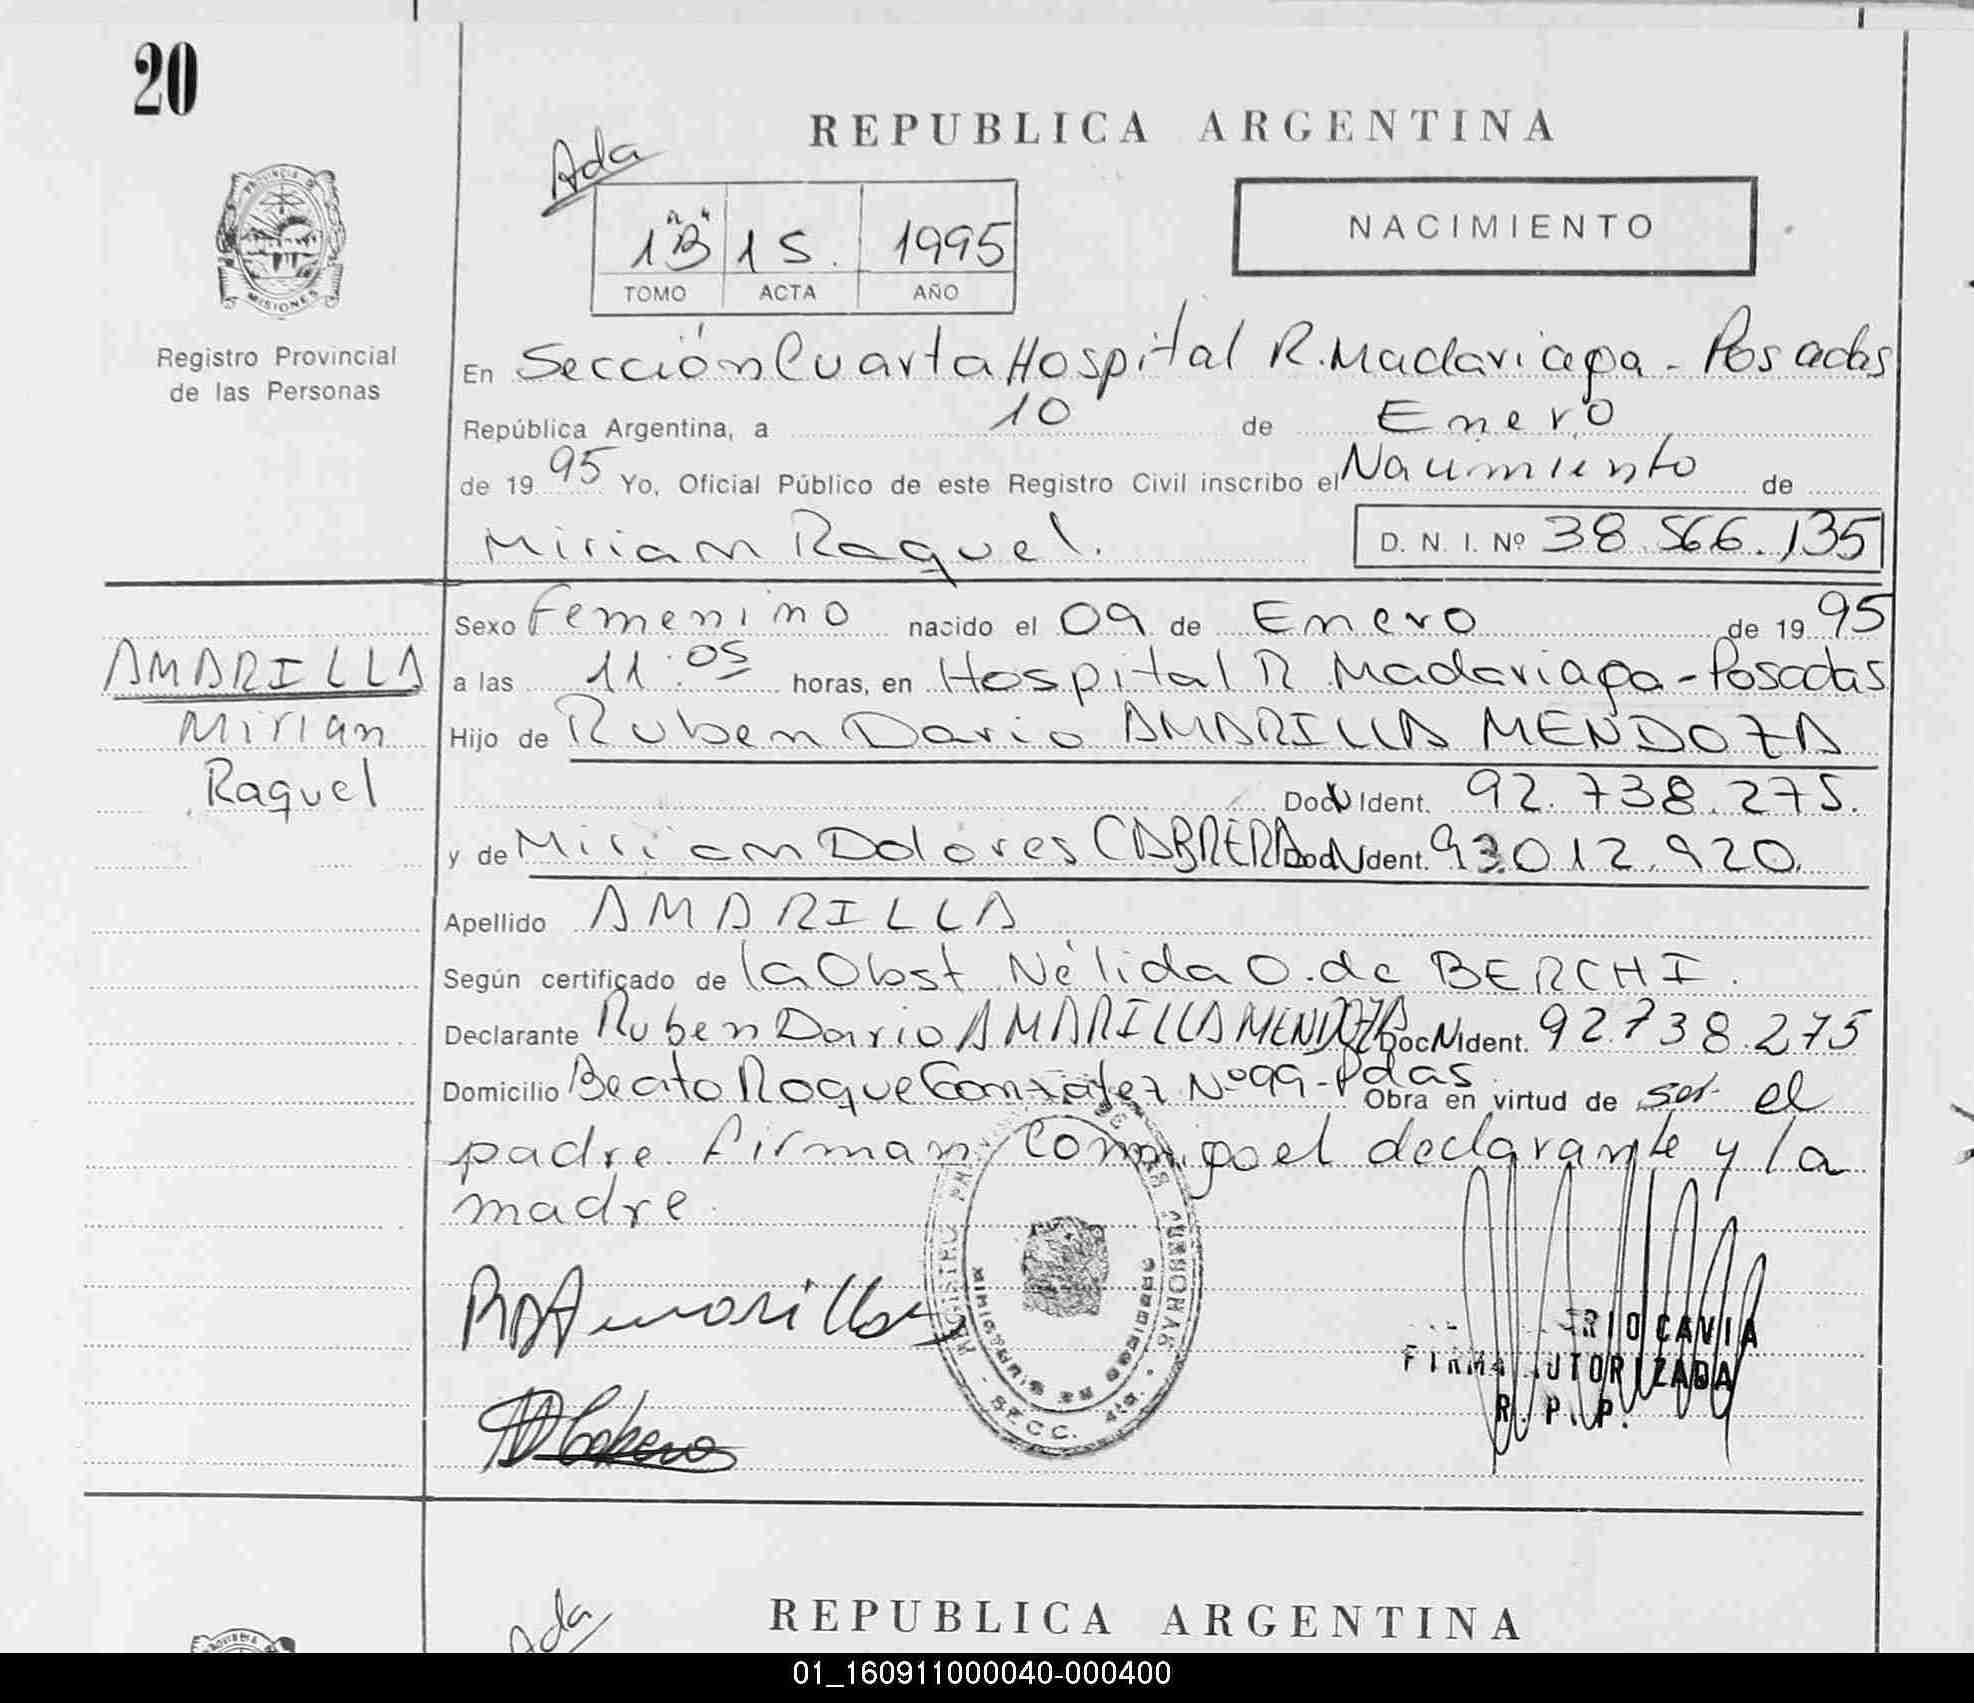 20
REPUBLICA ARGENTINA
Ada
1"B" 15. 1995
TOMO ACTA AÑO
NACIMIENTO
PROVINCIA DE
MISIONES
Registro Provincial
de las Personas
En Sección Cuarta Hospital R. Madariaga - Posadas
República Argentina, a 10 de Enero
de 1995 Yo, Oficial Público de este Registro Civil inscribo el Nacimiento de
Miriam Raquel. D. N. I. Nº 38.566.135
Sexo Femenino nacido el 09 de Enero de 1995
AMARILLA
a las 11:05 horas, en Hospital R. Madariaga - Posadas
Mirian
Hijo de Ruben Dario AMARILLA MENDOZA
Raquel
DocN Ident. 92.738.275.
y de Miriam Dolores CABRERA DocN Ident. 93.012.920.
Apellido AMARILLA
Según certificado de la Obst. Nélida O. de BERCHI.
Declarante Ruben Dario AMARILLA MENDOZA DocN Ident. 92.738.275
Domicilio Beato Roque Gonzalez Nº 99 - Pdas. Obra en virtud de ser el
padre firman conmigo el declarante y la
madre.
RDAmarilla
REGISTRO DE LAS PERSONAS
SECC. 4ta.
RIO CAVIA
FIRMA AUTORIZADA
R. P. P.
MDCabrera
Ada
REPUBLICA ARGENTINA
01_160911000040-000400